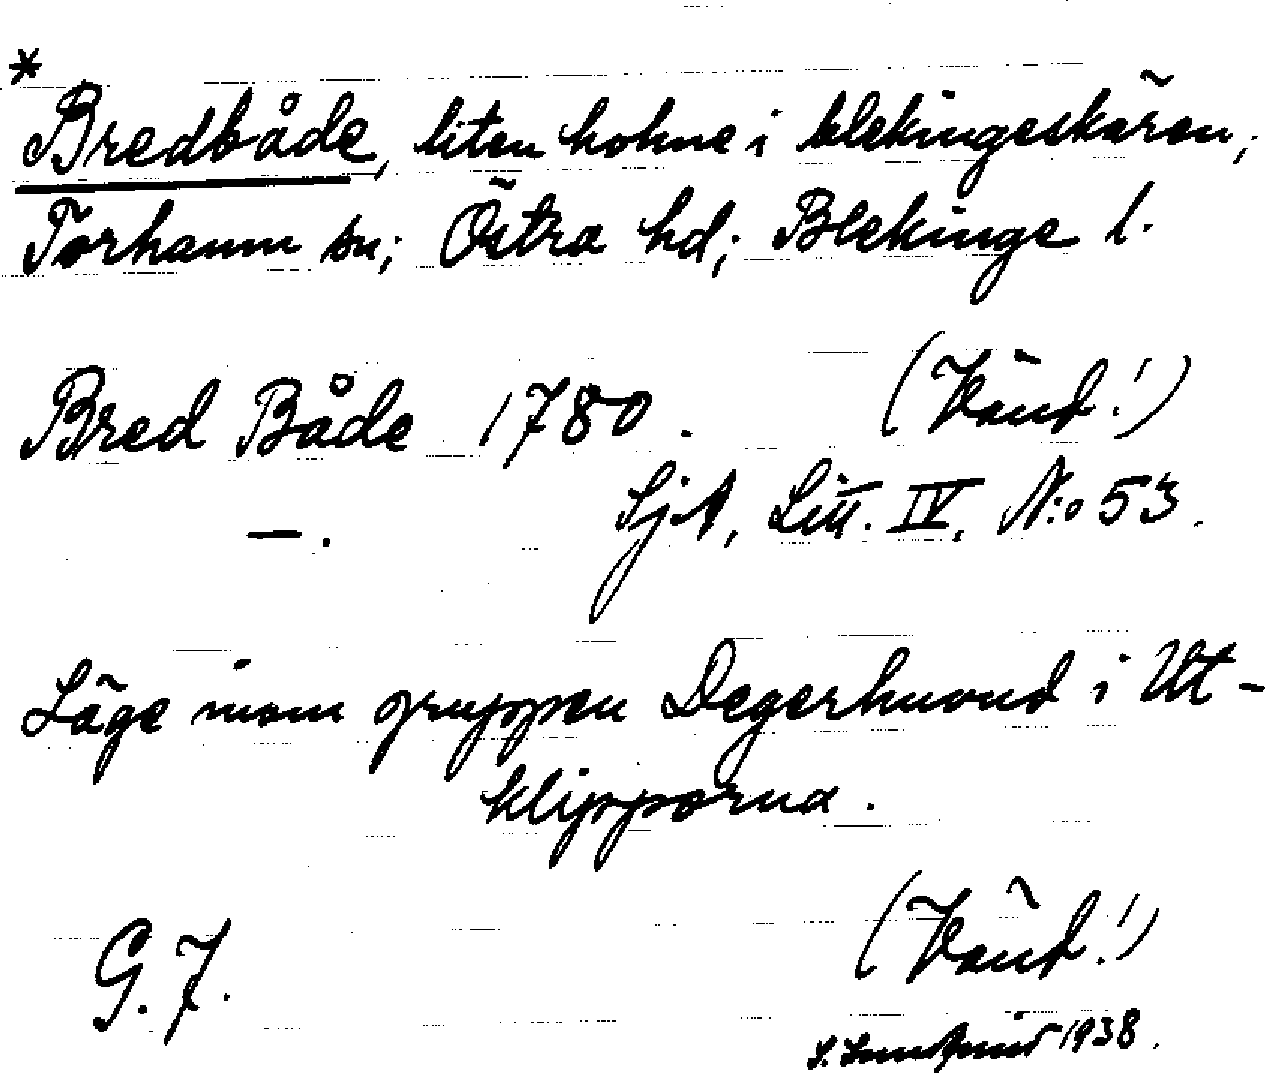 *
Bredbåde, liten holme i blekingeskären,
Torhamn sn; Östra hd; Blekinge l.
Bred Både 1780. (Vänd!)
—. SjA, Litt. IV, N:o 53.
Läge inom gruppen Degerhuvud i Ut-
klipporna.
G. 7. (Vänd!)
S. 1938.